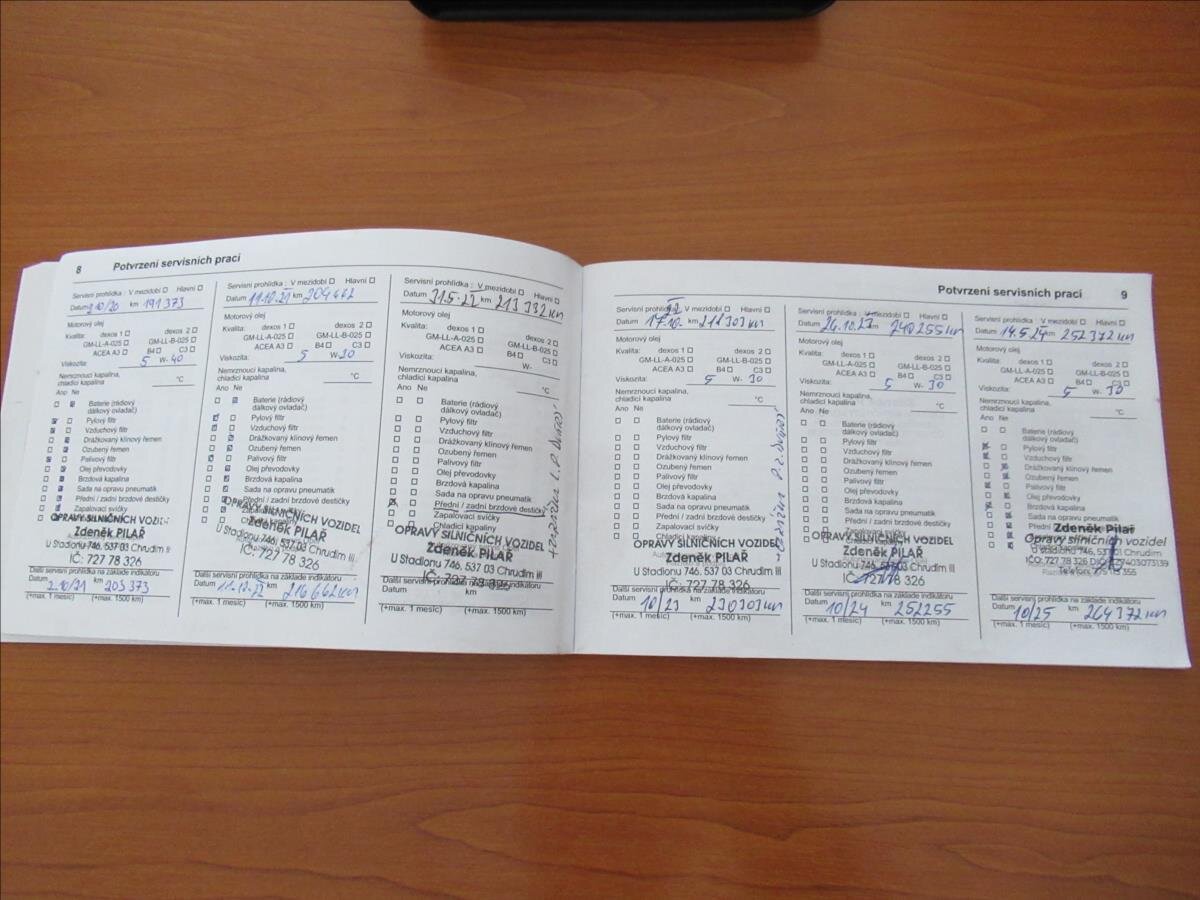 8 Potvrzení servisních prací
Servisní prohlídka : V mezidobí Hlavní
Datum 2.10/20 km 191 373
Motorový olej
Kvalita: dexos 1 dexos 2
GM-LL-A-025 GM-LL-B-025
ACEA A3 B4 C3
Viskozita: 5 W- 40
Nemrznoucí kapalina,
chladicí kapalina °C
Ano Ne
Baterie (rádiový
dálkový ovladač)
Pylový filtr
Vzduchový filtr
Drážkovaný klínový řemen
Ozubený řemen
Palivový filtr
Olej převodovky
Brzdová kapalina
Sada na opravu pneumatik
Přední / zadní brzdové destičky
Zapalovací svíčky
OPRAVY SILNIČNÍCH VOZIDEL
Zdeněk PILAŘ
U Stadionu 746, 537 03 Chrudim II
IČ: 727 78 326
Další servisní prohlídka na základě indikátoru
Datum 2.10/21 km 205 373
(+max. 1 měsíc) (+max. 1500 km)
Servisní prohlídka : V mezidobí Hlavní
Datum 11.10.21 km 204 662
Motorový olej
Kvalita: dexos 1 dexos 2
GM-LL-A-025 GM-LL-B-025
ACEA A3 B4 C3
Viskozita: 5 W- 30
Nemrznoucí kapalina,
chladicí kapalina °C
Ano Ne
Baterie (rádiový
dálkový ovladač)
Pylový filtr
Vzduchový filtr
Drážkovaný klínový řemen
Ozubený řemen
Palivový filtr
Olej převodovky
Brzdová kapalina
Sada na opravu pneumatik
Přední / zadní brzdové destičky
OPRAVY SILNIČNÍCH VOZIDEL
Zdeněk PILAŘ
U Stadionu 746, 537 03 Chrudim III
IČ: 727 78 326
Další servisní prohlídka na základě indikátoru
Datum 11.10.22 km 216 662 km
(+max. 1 měsíc) (+max. 1500 km)
Servisní prohlídka : V mezidobí Hlavní
Datum 31.5.22 km 213 332 km
Motorový olej
Kvalita: dexos 1 dexos 2
GM-LL-A-025 GM-LL-B-025
ACEA A3 B4 C3
Viskozita: W-
Nemrznoucí kapalina,
chladicí kapalina °C
Ano Ne
Baterie (rádiový
dálkový ovladač)
Pylový filtr
Vzduchový filtr
Drážkovaný klínový řemen
Ozubený řemen
Palivový filtr
Olej převodovky
Brzdová kapalina
Sada na opravu pneumatik
Přední / zadní brzdové destičky
Zapalovací svíčky
Chladicí kapalina
OPRAVY SILNIČNÍCH VOZIDEL
Zdeněk PILAŘ
U Stadionu 746, 537 03 Chrudim III
IČ: 727 78 326
Další servisní prohlídka na základě indikátoru
Datum km
(+max. 1 měsíc) (+max. 1500 km)
Potvrzení servisních prací 9
Servisní prohlídka : V mezidobí Hlavní
Datum 17.10. km 218 303 km
Motorový olej
Kvalita: dexos 1 dexos 2
GM-LL-A-025 GM-LL-B-025
ACEA A3 B4 C3
Viskozita: 5 W- 30
Nemrznoucí kapalina,
chladicí kapalina °C
Ano Ne
Baterie (rádiový
dálkový ovladač)
Pylový filtr
Vzduchový filtr
Drážkovaný klínový řemen
Ozubený řemen
Palivový filtr
Olej převodovky
Brzdová kapalina
Sada na opravu pneumatik
Přední / zadní brzdové destičky
Zapalovací svíčky
Chladicí kapalina
OPRAVY SILNIČNÍCH VOZIDEL
Zdeněk PILAŘ
U Stadionu 746, 537 03 Chrudim III
IČ: 727 78 326
Další servisní prohlídka na základě indikátoru
Datum 10/23 km 230303 km
(+max. 1 měsíc) (+max. 1500 km)
Servisní prohlídka : V mezidobí Hlavní
Datum 26.10.23 km 240 255 km
Motorový olej
Kvalita: dexos 1 dexos 2
GM-LL-A-025 GM-LL-B-025
ACEA A3 B4 C3
Viskozita: 5 W- 30
Nemrznoucí kapalina,
chladicí kapalina °C
Ano Ne
Baterie (rádiový
dálkový ovladač)
Pylový filtr
Vzduchový filtr
Drážkovaný klínový řemen
Ozubený řemen
Palivový filtr
Olej převodovky
Brzdová kapalina
Sada na opravu pneumatik
Přední / zadní brzdové destičky
Zapalovací svíčky
OPRAVY SILNIČNÍCH VOZIDEL
Zdeněk PILAŘ
U Stadionu 746, 537 03 Chrudim III
IČ: 727 78 326
Další servisní prohlídka na základě indikátoru
Datum 10/24 km 252255
(+max. 1 měsíc) (+max. 1500 km)
Servisní prohlídka : V mezidobí Hlavní
Datum 14.5.24 km 252 372 km
Motorový olej
Kvalita: dexos 1 dexos 2
GM-LL-A-025 GM-LL-B-025
ACEA A3 B4 C3
Viskozita: 5 W- 30
Nemrznoucí kapalina,
chladicí kapalina °C
Ano Ne
Baterie (rádiový
dálkový ovladač)
Pylový filtr
Vzduchový filtr
Drážkovaný klínový řemen
Ozubený řemen
Palivový filtr
Olej převodovky
Brzdová kapalina
Sada na opravu pneumatik
Zdeněk Pilař
Opravy silničních vozidel
U Stadionu 746, 537 01 Chrudim
Další servisní prohlídka na základě indikátoru
Datum 10/25 km 264 372 km
(+max. 1 měsíc) (+max. 1500 km)